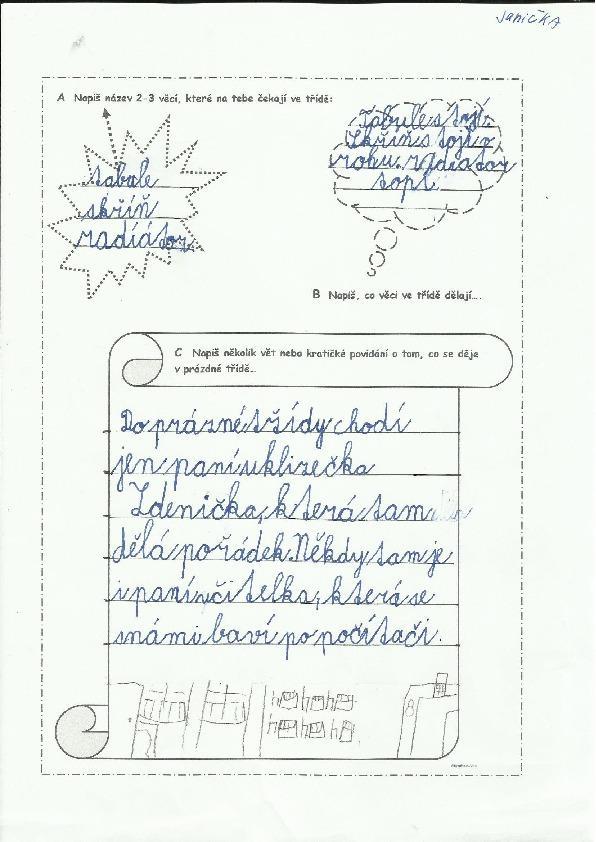 Janička
A Napiš název 2-3 věcí, které na tebe čekají ve třídě:
tabule
skříň
radiátor
Tabule stojí.
Skříň stojí v
rohu. radiator
topí
B Napiš, co věci ve třídě dělají....
C Napiš několik vět nebo kratičké povídání o tom, co se děje
v prázdné třídě...
Do prázné třídy chodí
jen paní uklizečka
Zdenička, která tam
dělá pořádek. Někdy tam je
i paní učitelka, která se
snámi baví po počítači.